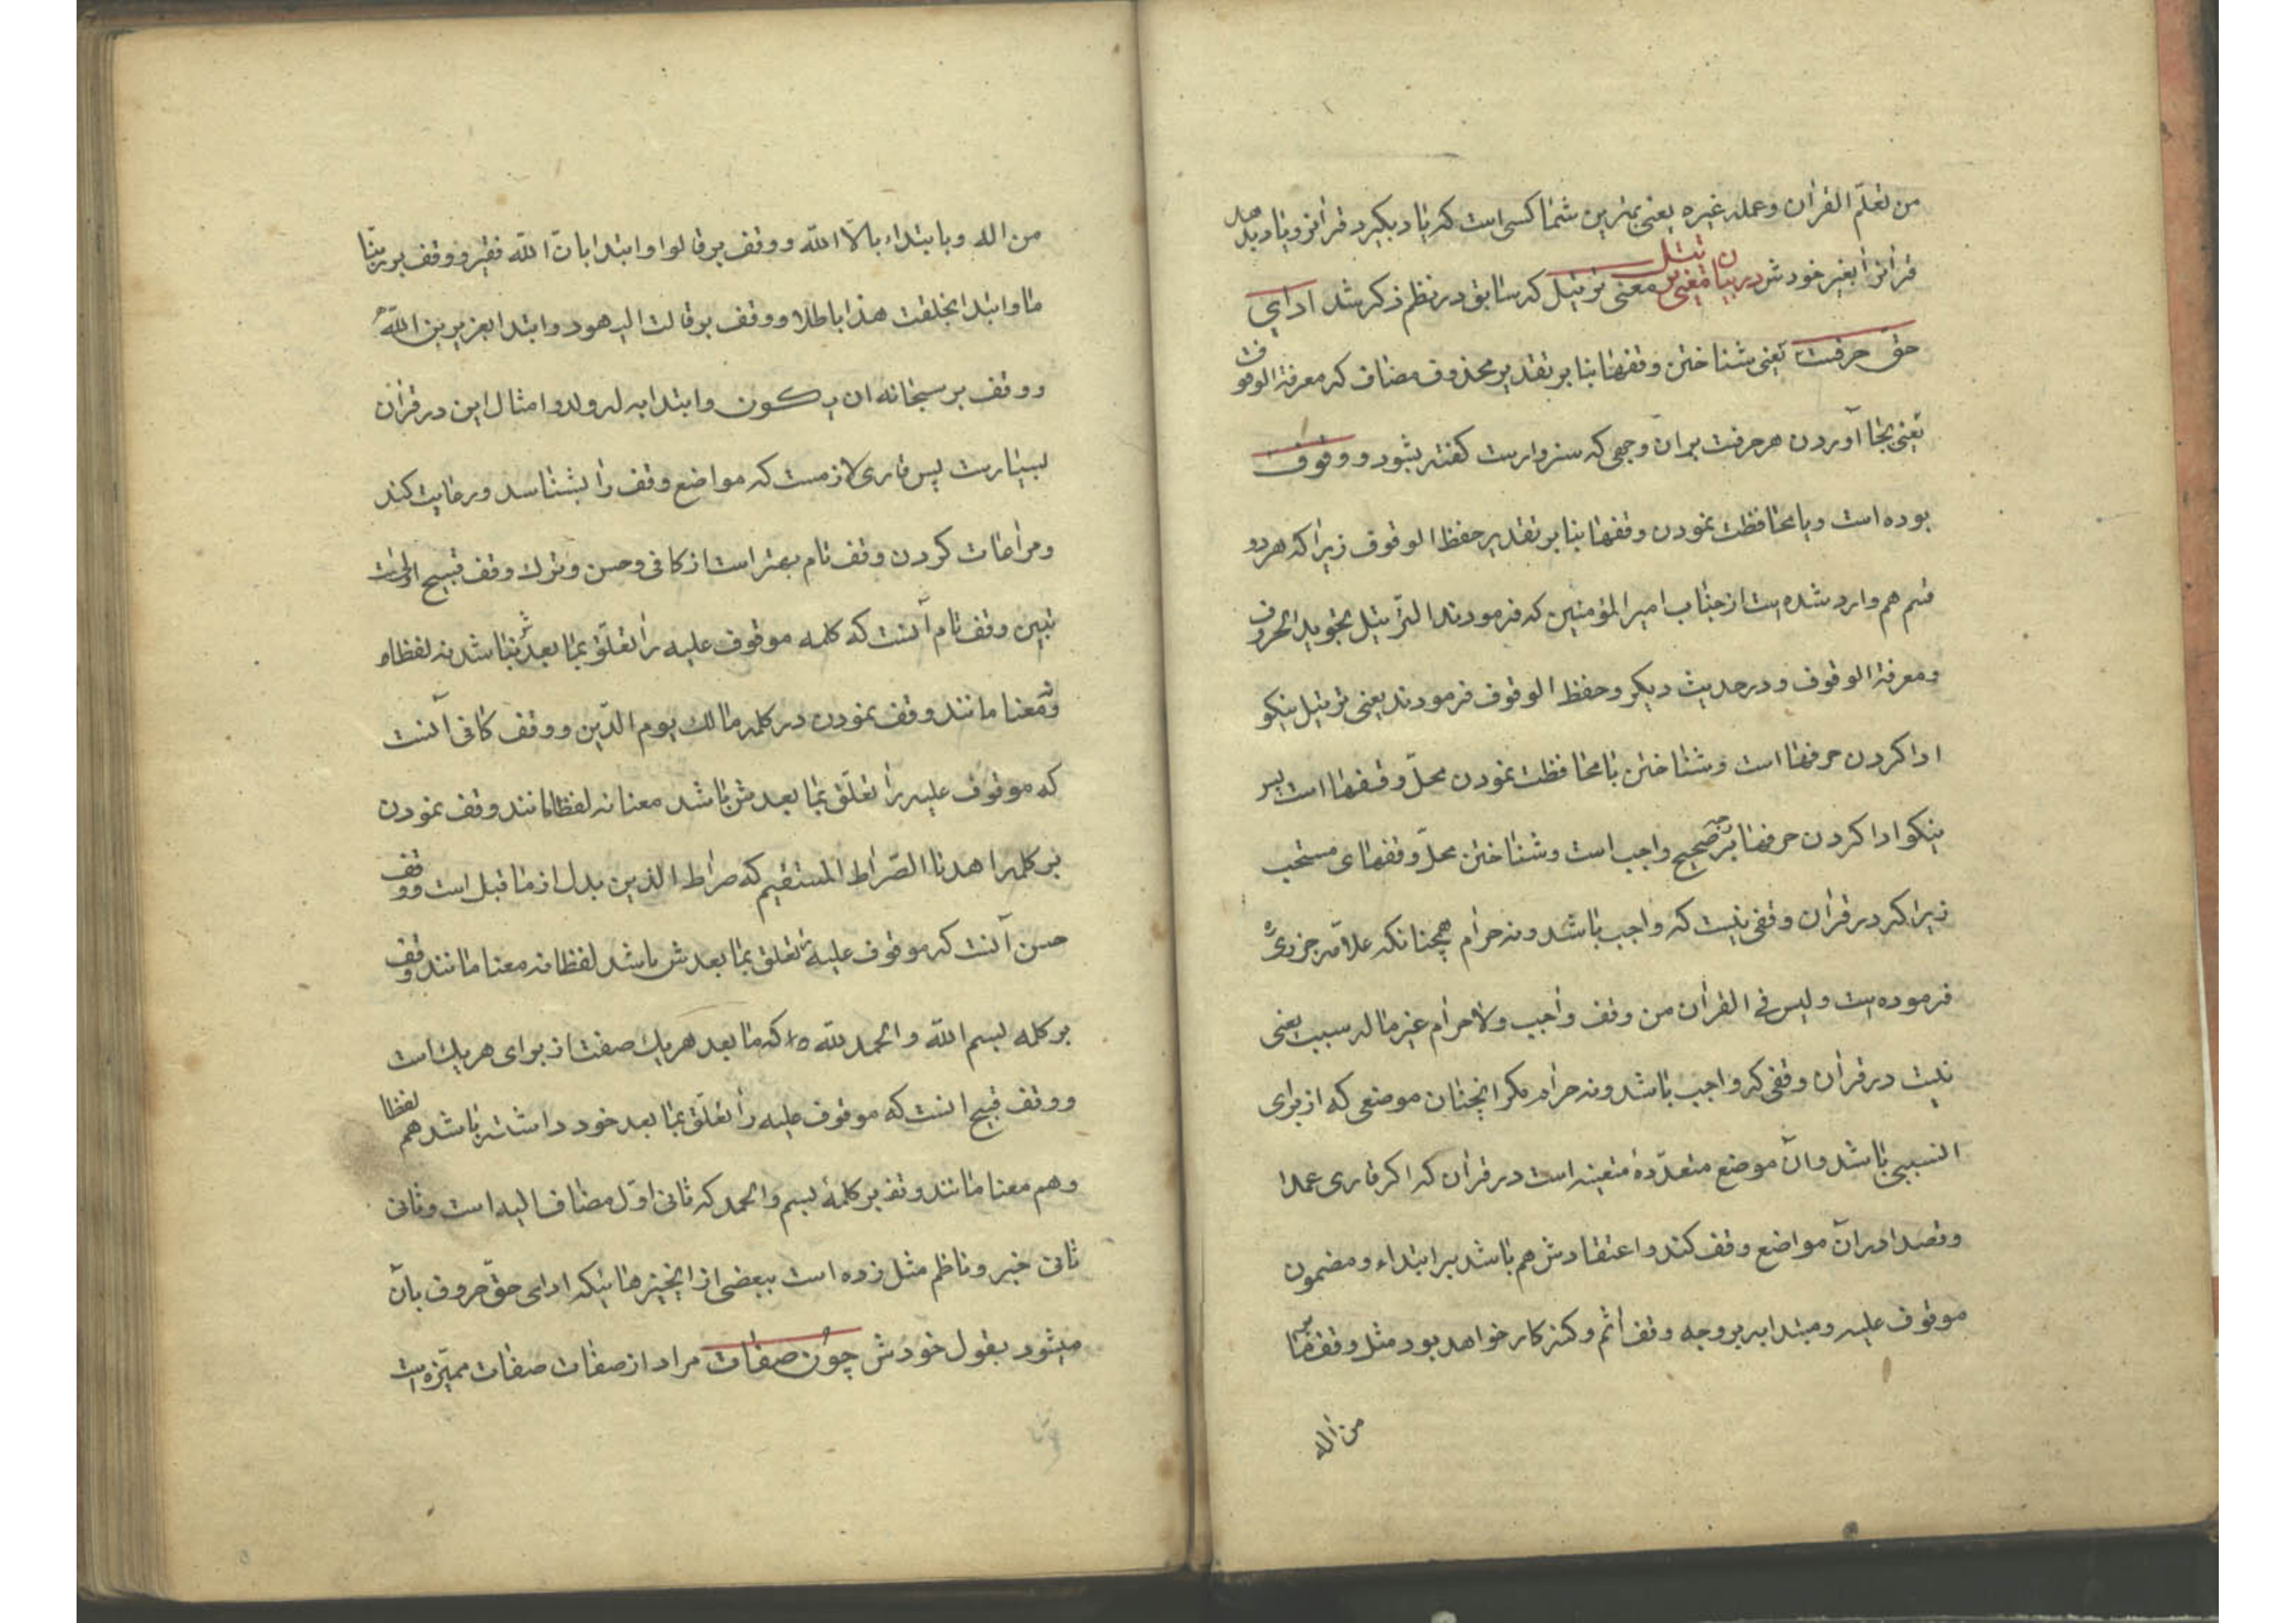 من تعلّم القرآن وعلمه غیره یعنی بهترین شما کسی است که یاد بگیرد قرآنرا و یاد بدهد
قرآنرا بغیر خودش در بیان معنی ترتیل معنی ترتیل که سابق در نظم ذکر شد ادای
حق حرفت یعنی شناختن وقفها بنا بر تقدیر محذوف مضاف که معرفة الوقوف
یعنی بجا آوردن هر حرفت بران وجهی که سزاوارست کفته بشود و وقوف
بوده است و یا محافظت نمودن وقفها بنا بر تقدیر حفظ الوقوف زیرا که هر دو
قسم هم وارد شده است از جناب امیر المؤمنین که فرمودند الترّتیل تجوید الحروف
ومعرفة الوقوف و در حدیث دیکر وحفظ الوقوف فرمودند یعنی ترتیل نیکو
ادا کردن حرفها است و شناختن یا محافظت نمودن محلّ وقفها است پس
نیکو ادا کردن حرفها صحیح واجب است و شناختن محلّ وقفهای مستحب
زیرا که در قرآن وقفی نیست که واجب باشد و نه حرام همچنانکه علاّمه جزری ره
فرموده است ولیس فی القرآن من وقف واجب ولا حرام غیر ما له سبب یعنی
نیست در قرآن وقفی که واجب باشد و نه حرام مکر انچنان موضعی که از برای
انسببی باشد وآن موضع متعدّدهٔ متعینه است در قرآن که اکر قاری عمدا
وقصدا در آن مواضع وقف کند و اعتقادش هم باشد بر ابتداء و مضمون
موقوف علیه ومبتدا به بر وجه وقف آثم وکنه کار خواهد بود مثل وقف بر ما
من اله
من اله وبا بتداء بالاّ اللّه و وقف بر قالوا وابتدا بانّ اللّه فقیر و وقف بر ربّنا
ما وابتدا بخلقت هذا باطلا و وقف بر قالت الیهود وابتدا بعزیر بن اللّه
و وقف بر سبحانه ان یکون وابتدا به له ولد و امثال این در قرآن
بسیارست پس قاری لازمست که مواضع وقف را بشناسد و رعایت کند
ومراعات کردن وقف تام بهتر است از کافی وحسن وترک وقف قبیح اولی است
تبیین وقف تام آنست که کلمه موقوف علیه را تعلّق بما بعدش نباشد نه لفظا و
نه معنا مانند وقف نمودن در کلمه مالک یوم الدّین و وقف کافی آنست
که موقوف علیه را تعلّق بما بعدش باشد معنا نه لفظا مانند وقف نمودن
بر کلمه اهدنا الصّراط المستقیم که صراط الذین بدل از ما قبل است و وقف
حسن آنست که موقوف علیه را تعلق بما بعدش باشد لفظا نه معنا مانند وقف
بر کلمه بسم اللّه و الحمد للّه که ما بعد هر یک صفت از برای هر یک است
و وقف قبیح انست که موقوف علیه را تعلّق بما بعد خود داشته باشد هم لفظا
و هم معنا مانند وقف بر کلمهٔ بسم والحمد که ثانی اوّل مضاف الیه است وثانی
ثانی خبر و ناظم مثل زده است ببعضی از انچیزهائیکه ادای حقّ حروف بآن
میشود بقول خودش چون صفات مراد از صفات صفات ممیّزه است